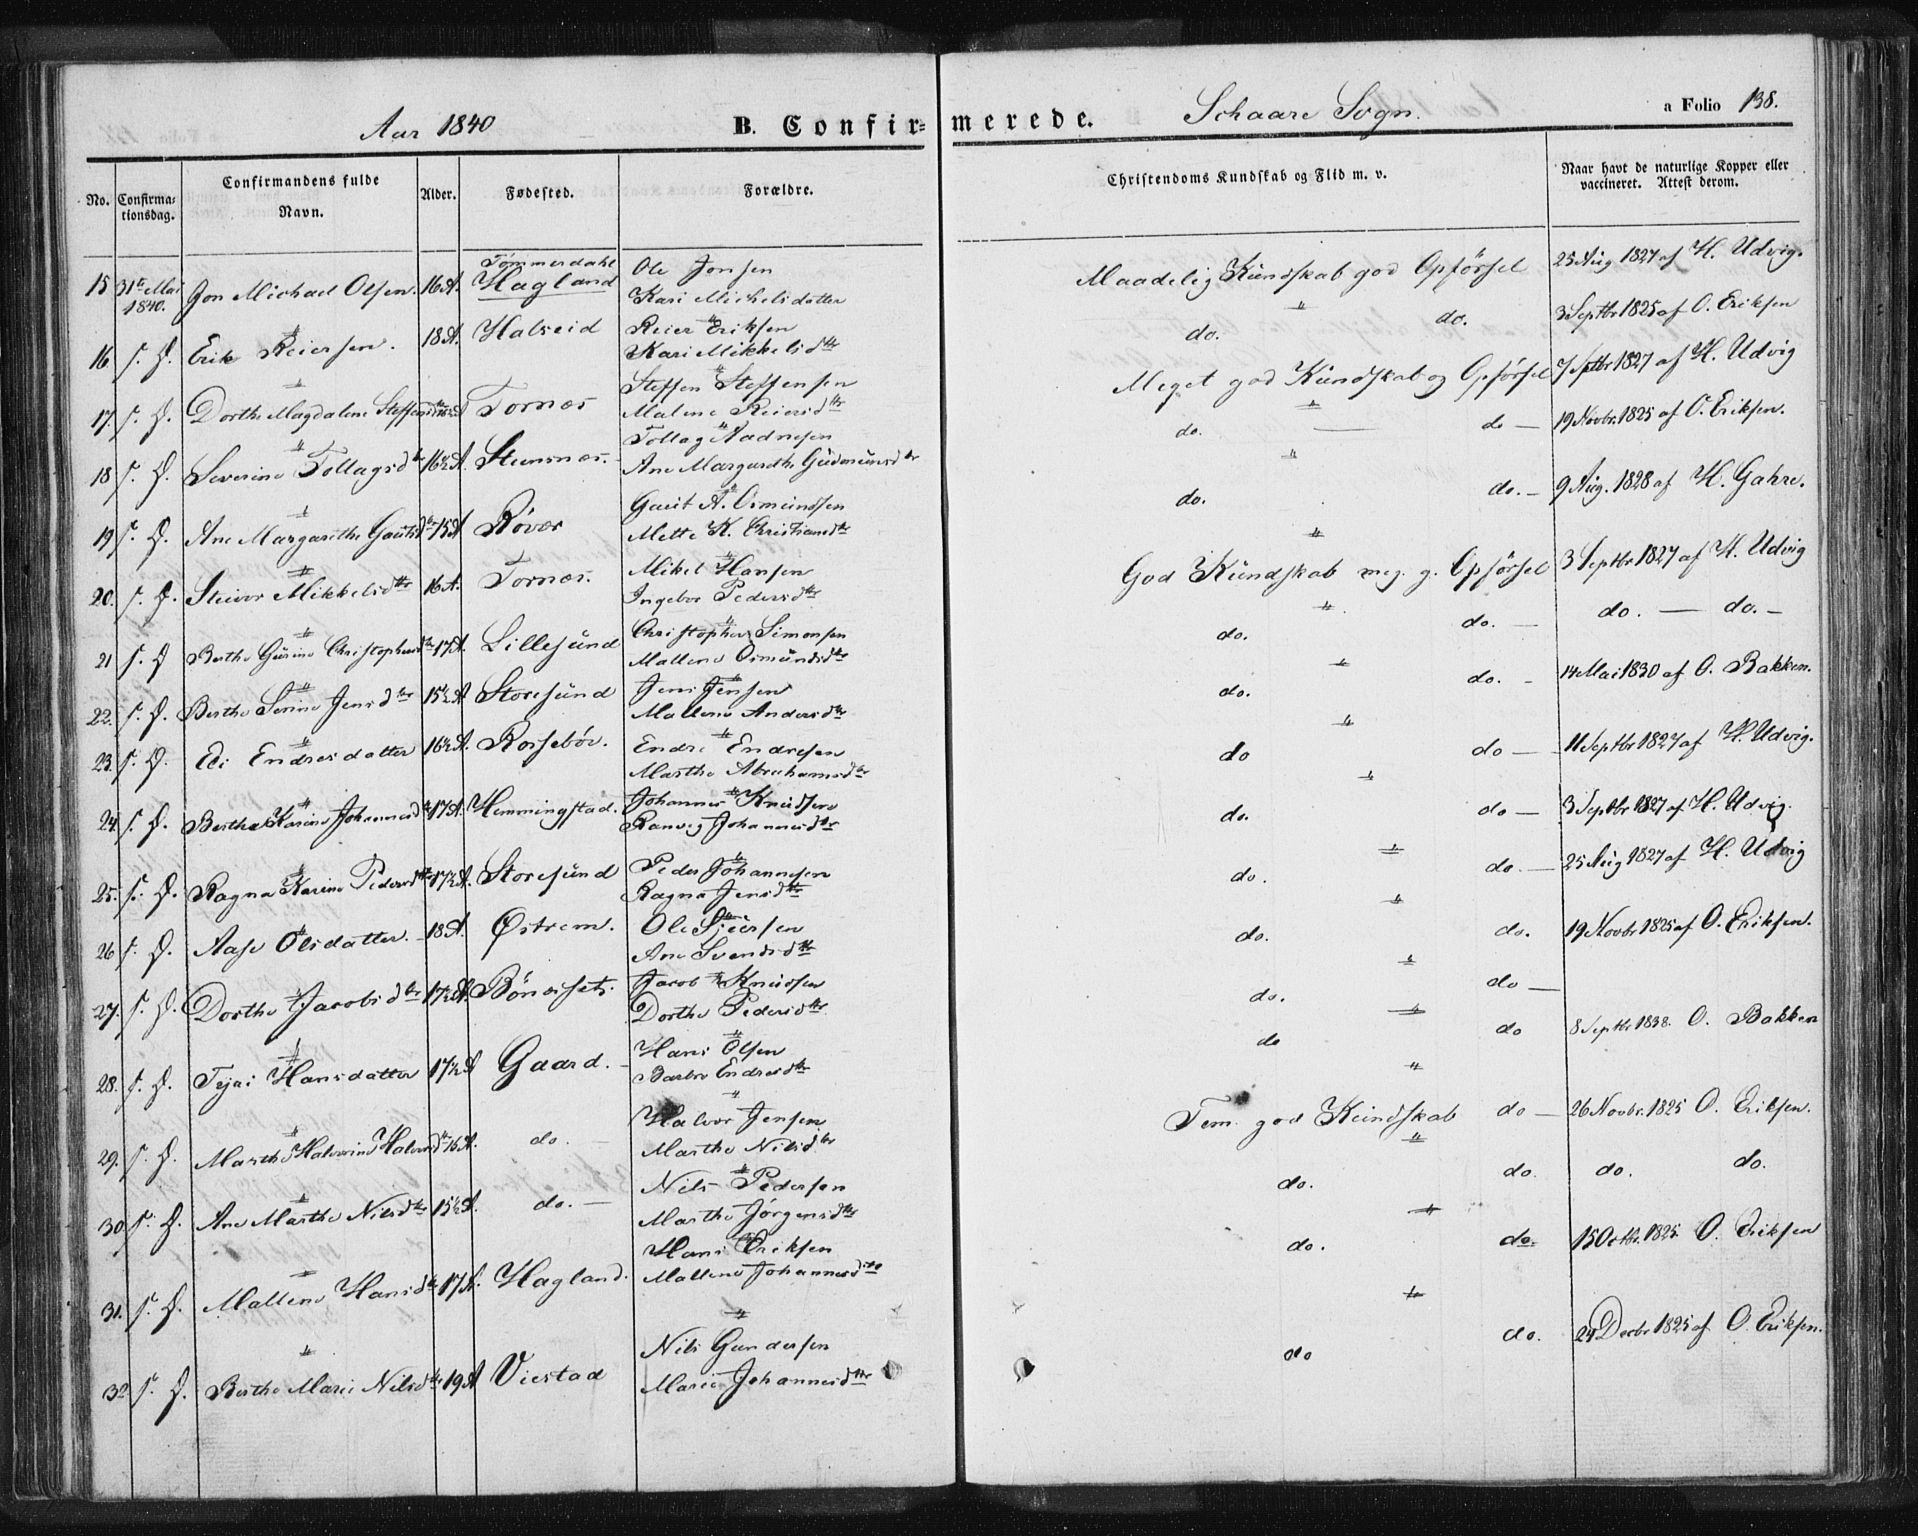 Aar 1840
B. Confirmerede.
Schaare Sogn.
a Folio 138.
No. Confirmationsdag. Confirmandens fulde Navn. Alder. Fødested. Forældre. Christendoms Kundskab og Flid m. v. Naar havt de naturlige Kopper eller vaccineret. Attest derom.
15 31te Mai 1840. Jon Michael Olsen. 16 A. Tømmerdahl Hagland Ole Jonsen Kari Michelsdatter Maadelig Kundskab god Opførsel 25 Aug 1827 af H. Udvig.
16. s. D. Erik Reiersen. 18 A. Halseid Reier Eriksen Kari Mikkelsdtr do. do. 3 Septbr 1825 af O. Eriksen
17. s. D. Dorthe Magdalene Tornes Steffen Steffensen Malene Reiersdtr Meget god Kundskab og Opførsel 7 Septbr 1827 af H. Udvig
18 s. D. Severine Tollagsdtr 16½ A. Steensnes. Tollag Aadnesen Ane Margarethe Gudmundsdtr do. do — 19 Novbr. 1825 af O. Eriksen.
19 s. D. Ane Margarethe Gautsdtr 15 A Røvær Gaut A. Osmundsen Mette K. Christiansdtr do. do. — 9 Aug. 1828 af H. Gahre.
20. s. D. Mikkelsdtr 16 A. Tornes. Mikel Hansen Ingebor Pedersdtr God Kundskab meg. g. Opførsel 3 Septbr 1827 af H. Udvig
21 s. D Berthe Gurine Christophersdtr 17 A. Lillesund Christopher Simonsen Mallene Osmundsdtr do. do. — do. — do. —
22. s. D. Berthe Serine Jensdtr 15½ A Storesund Jens Jensen Mallene Andersdtr do. do. - 14 Mai 1830 af O. Bakken.
23. s. D. Edi Endresdatter 16½ A. Rossebøe. Endre Endresen Marthe Abrahamsdtr do do — 11 Septbr 1827 af H. Udvig.
24. s. D. Berthe Karine Johannesd 17 A. Hemmingstad. Johannes Knudsen Ranveg Johannesdtr do. do — 3 Septbr 1827 af H. Udvig.
25. s. D. Ragna Karine Pedersdtr 17½ A. Storesund Peder Johannesen Ragna Jensdtr do. do. — 25 Aug 1827 af H. Udvig
26 s. D. Aase Olsdatter. 18 A. Østrem. Ole Ane Svendsdtr do. do. 19 Novbr 1825 af O. Eriksen.
27. s. D. Dorthe Jacobsdtr 17½ A. Jacob Knudsen Dorthe Pedersdtr do. do —
28. s. D. Hansdatter 17½ A Gaard. Hans Olsen Barbro Endresdtr do do 8 Septbr 1838. O. Bakken
29. s. D. Marthe Halvorine Halvorsd 16 A. do. — Halvor Jensen Marthe Nilsdtr Tem. god Kundskab do — 26 Novbr. 1825 O. Eriksen.
30 s. D. Ane Marthe Nilsdtr 15½ A. do. — Nils Pedersen Marthe Jørgensdtr do. do. do. do.
31. s. D. Mallene Hansdtr 17 A. Hagland. Hans Eriksen Mallene Johannesdtr do. do. 15 Octbr. 1825. O. Eriksen
32 s. D. Berthe Marie Nilsdtr 19 A Viestad Nils Gundersen Marie Johannesdtr do do. 24 Decbr 1825 af O. Eriksen.